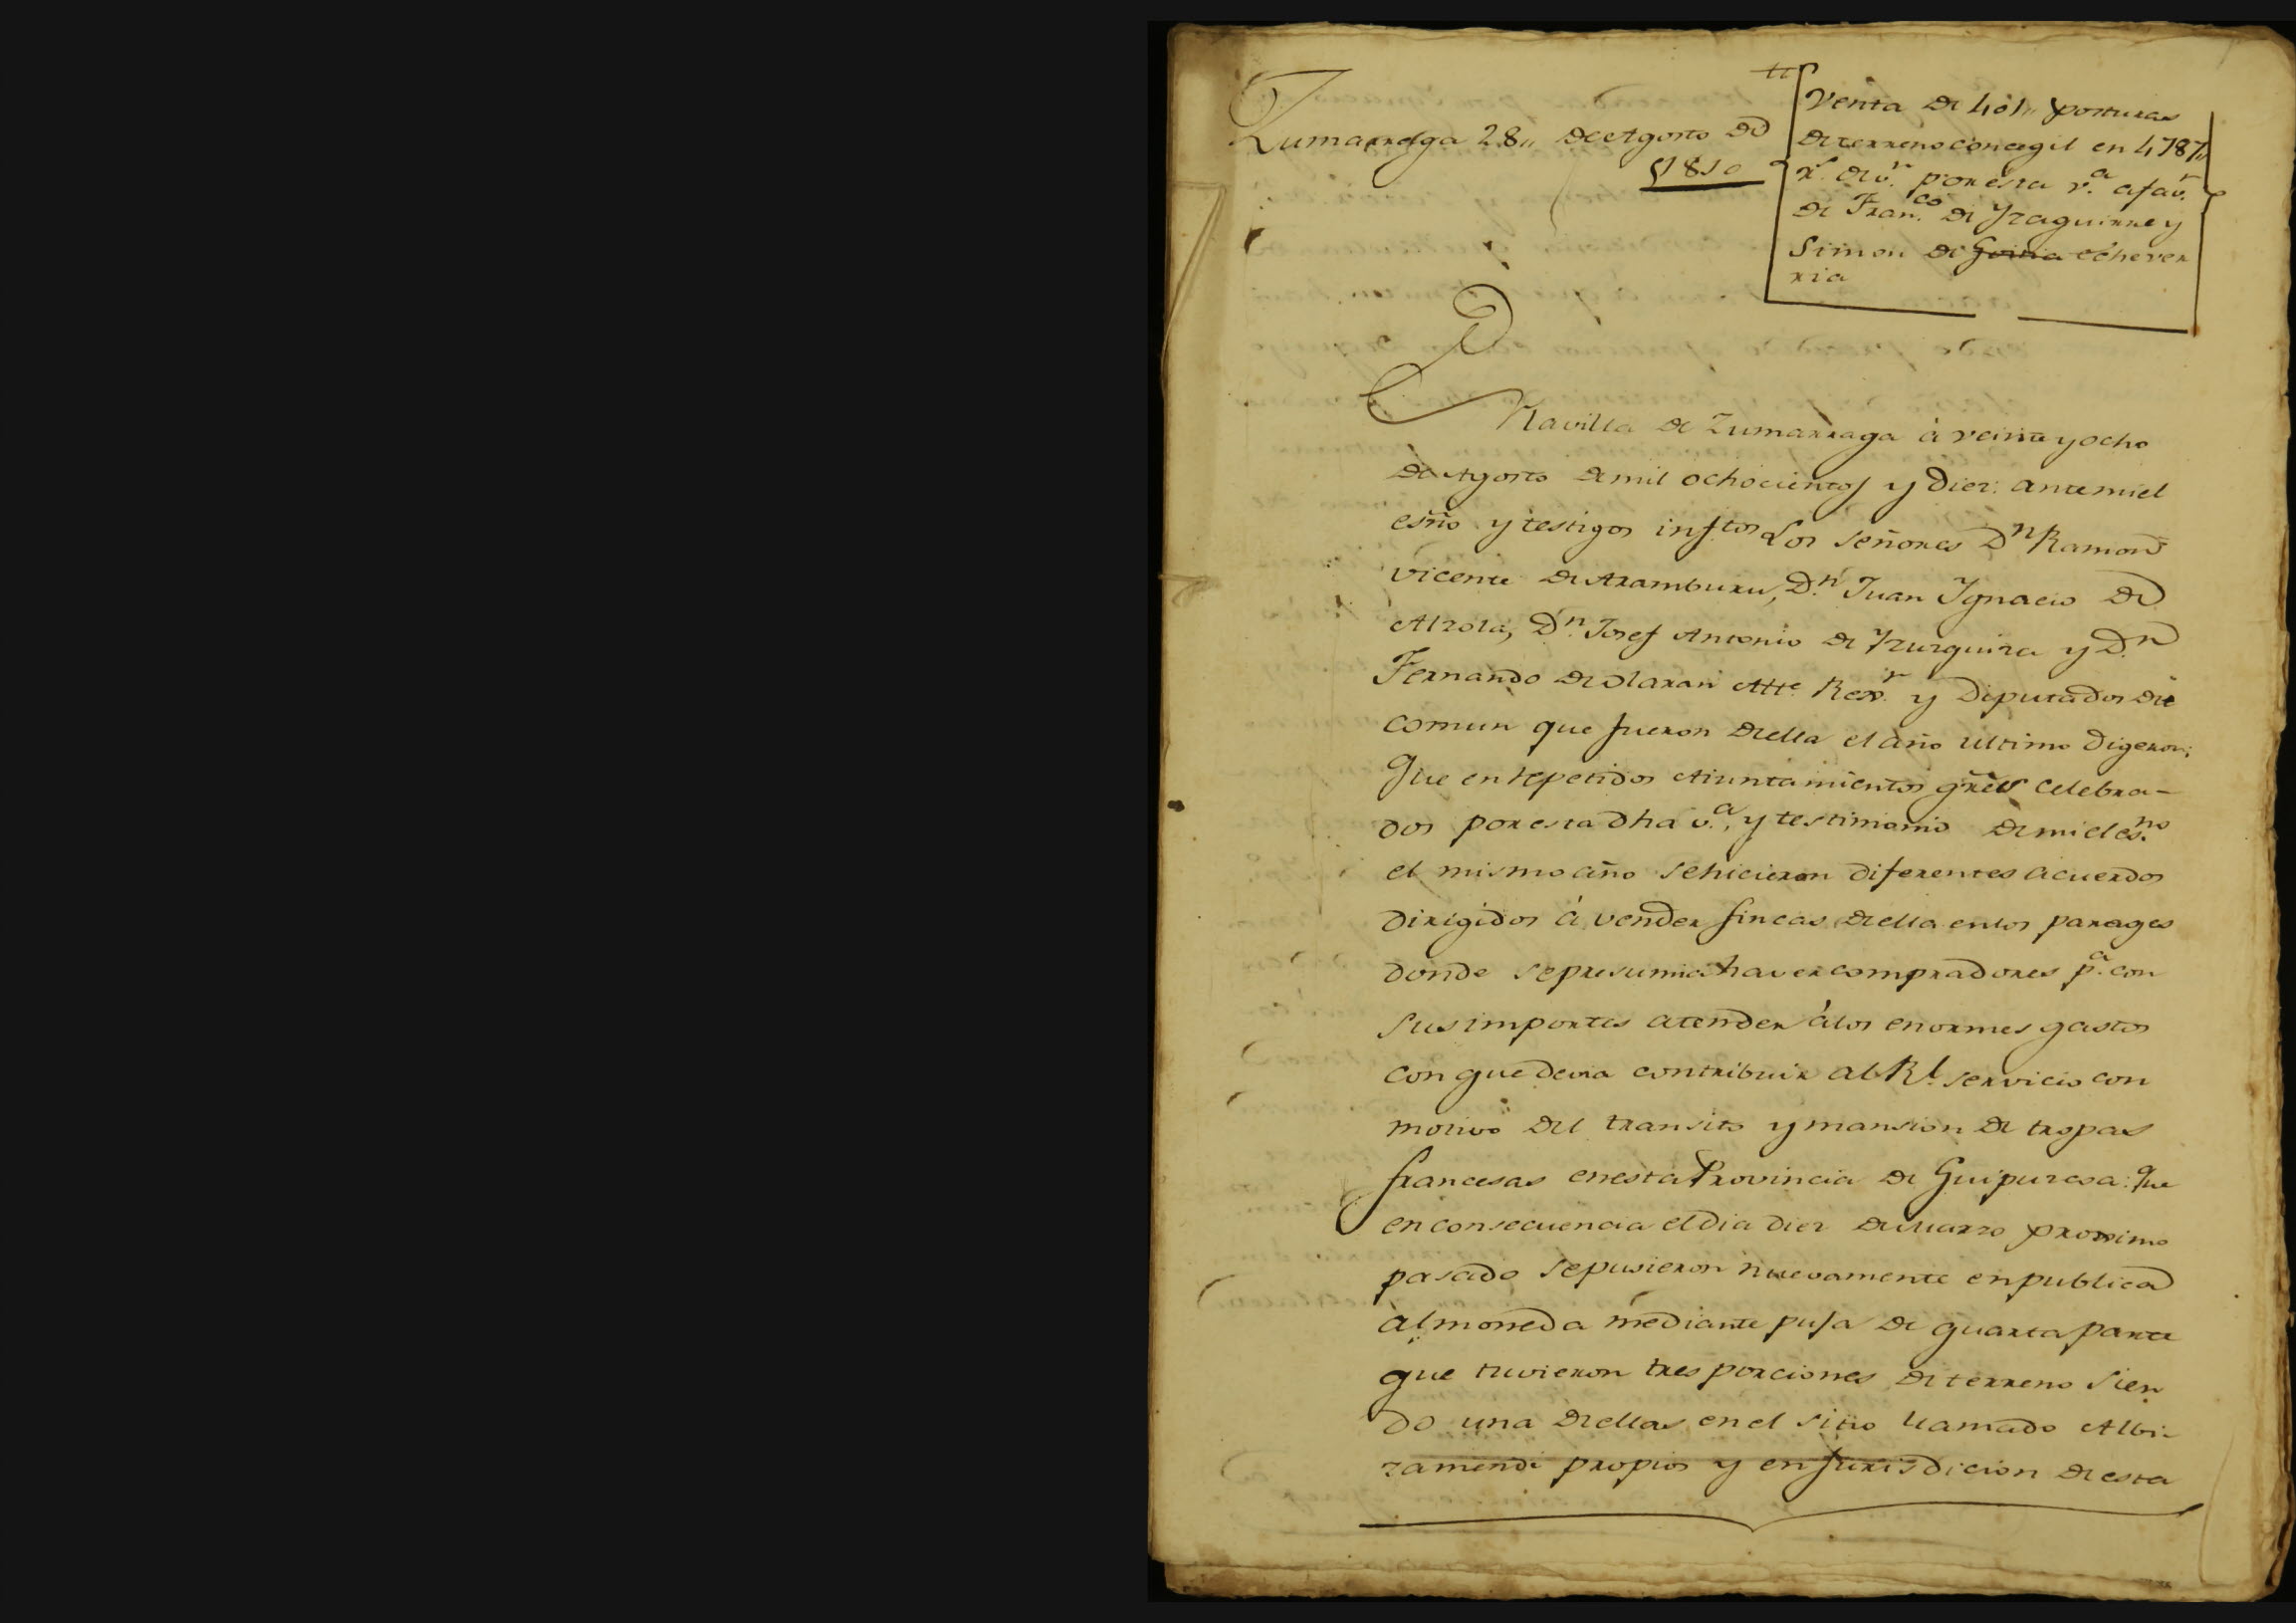 Zumarraga 28,, de Agosto de
1810
Venta de 401,, posturas
de terreno concegil en 4787,,
rs. de vn. por esta va. a fav.r
de Fran.co de Yzaguirre y
Simon de Goitia echever
ria
En la villa de Zumarraga à veinte y ocho
de Agosto de mil ochocientos y diez: ante mi el
esño y testigos inftos Los Señores Dn Ramon
Vicente de Aramburu, D.n Juan Ygnacio de
Alzola, D.n Josef Antonio de Yzuzquiza y D.n
Fernando de Olaran Alte. Rexr. y Diputados de
comun que fueron de ella el año ultimo digeron:
Que en repetidos Aiuntamientos gres celebra-
dos por esta dha v.a, y testimonio de mi el es.no
el mismo año se hicieron diferentes acuerdos
dirigidos à vender fincas de ella en los parages
donde se presumia haver compradores p.a con
sus importes atender à los enormes gastos
con que devia contribuir al Rl. servicio con
motivo del transito y mansion de tropas
francesas en esta Provincia de Guipuzcoa: Que
en consecuencia el dia diez de Marzo proximo
pasado se pusieron nuevamente en publica
almoneda mediante puja de quarta parte
que tuvieron tres porciones de terreno sien
do una de ellas en el sitio llamado Albi-
zamendi propios y en Jurisdicion de esta